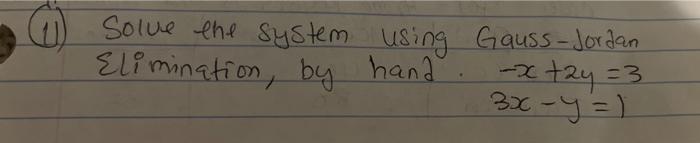 (11) Solve the system using Gauss-Jordan
Elimination, by hand. -x+2y=3
3x-y=1